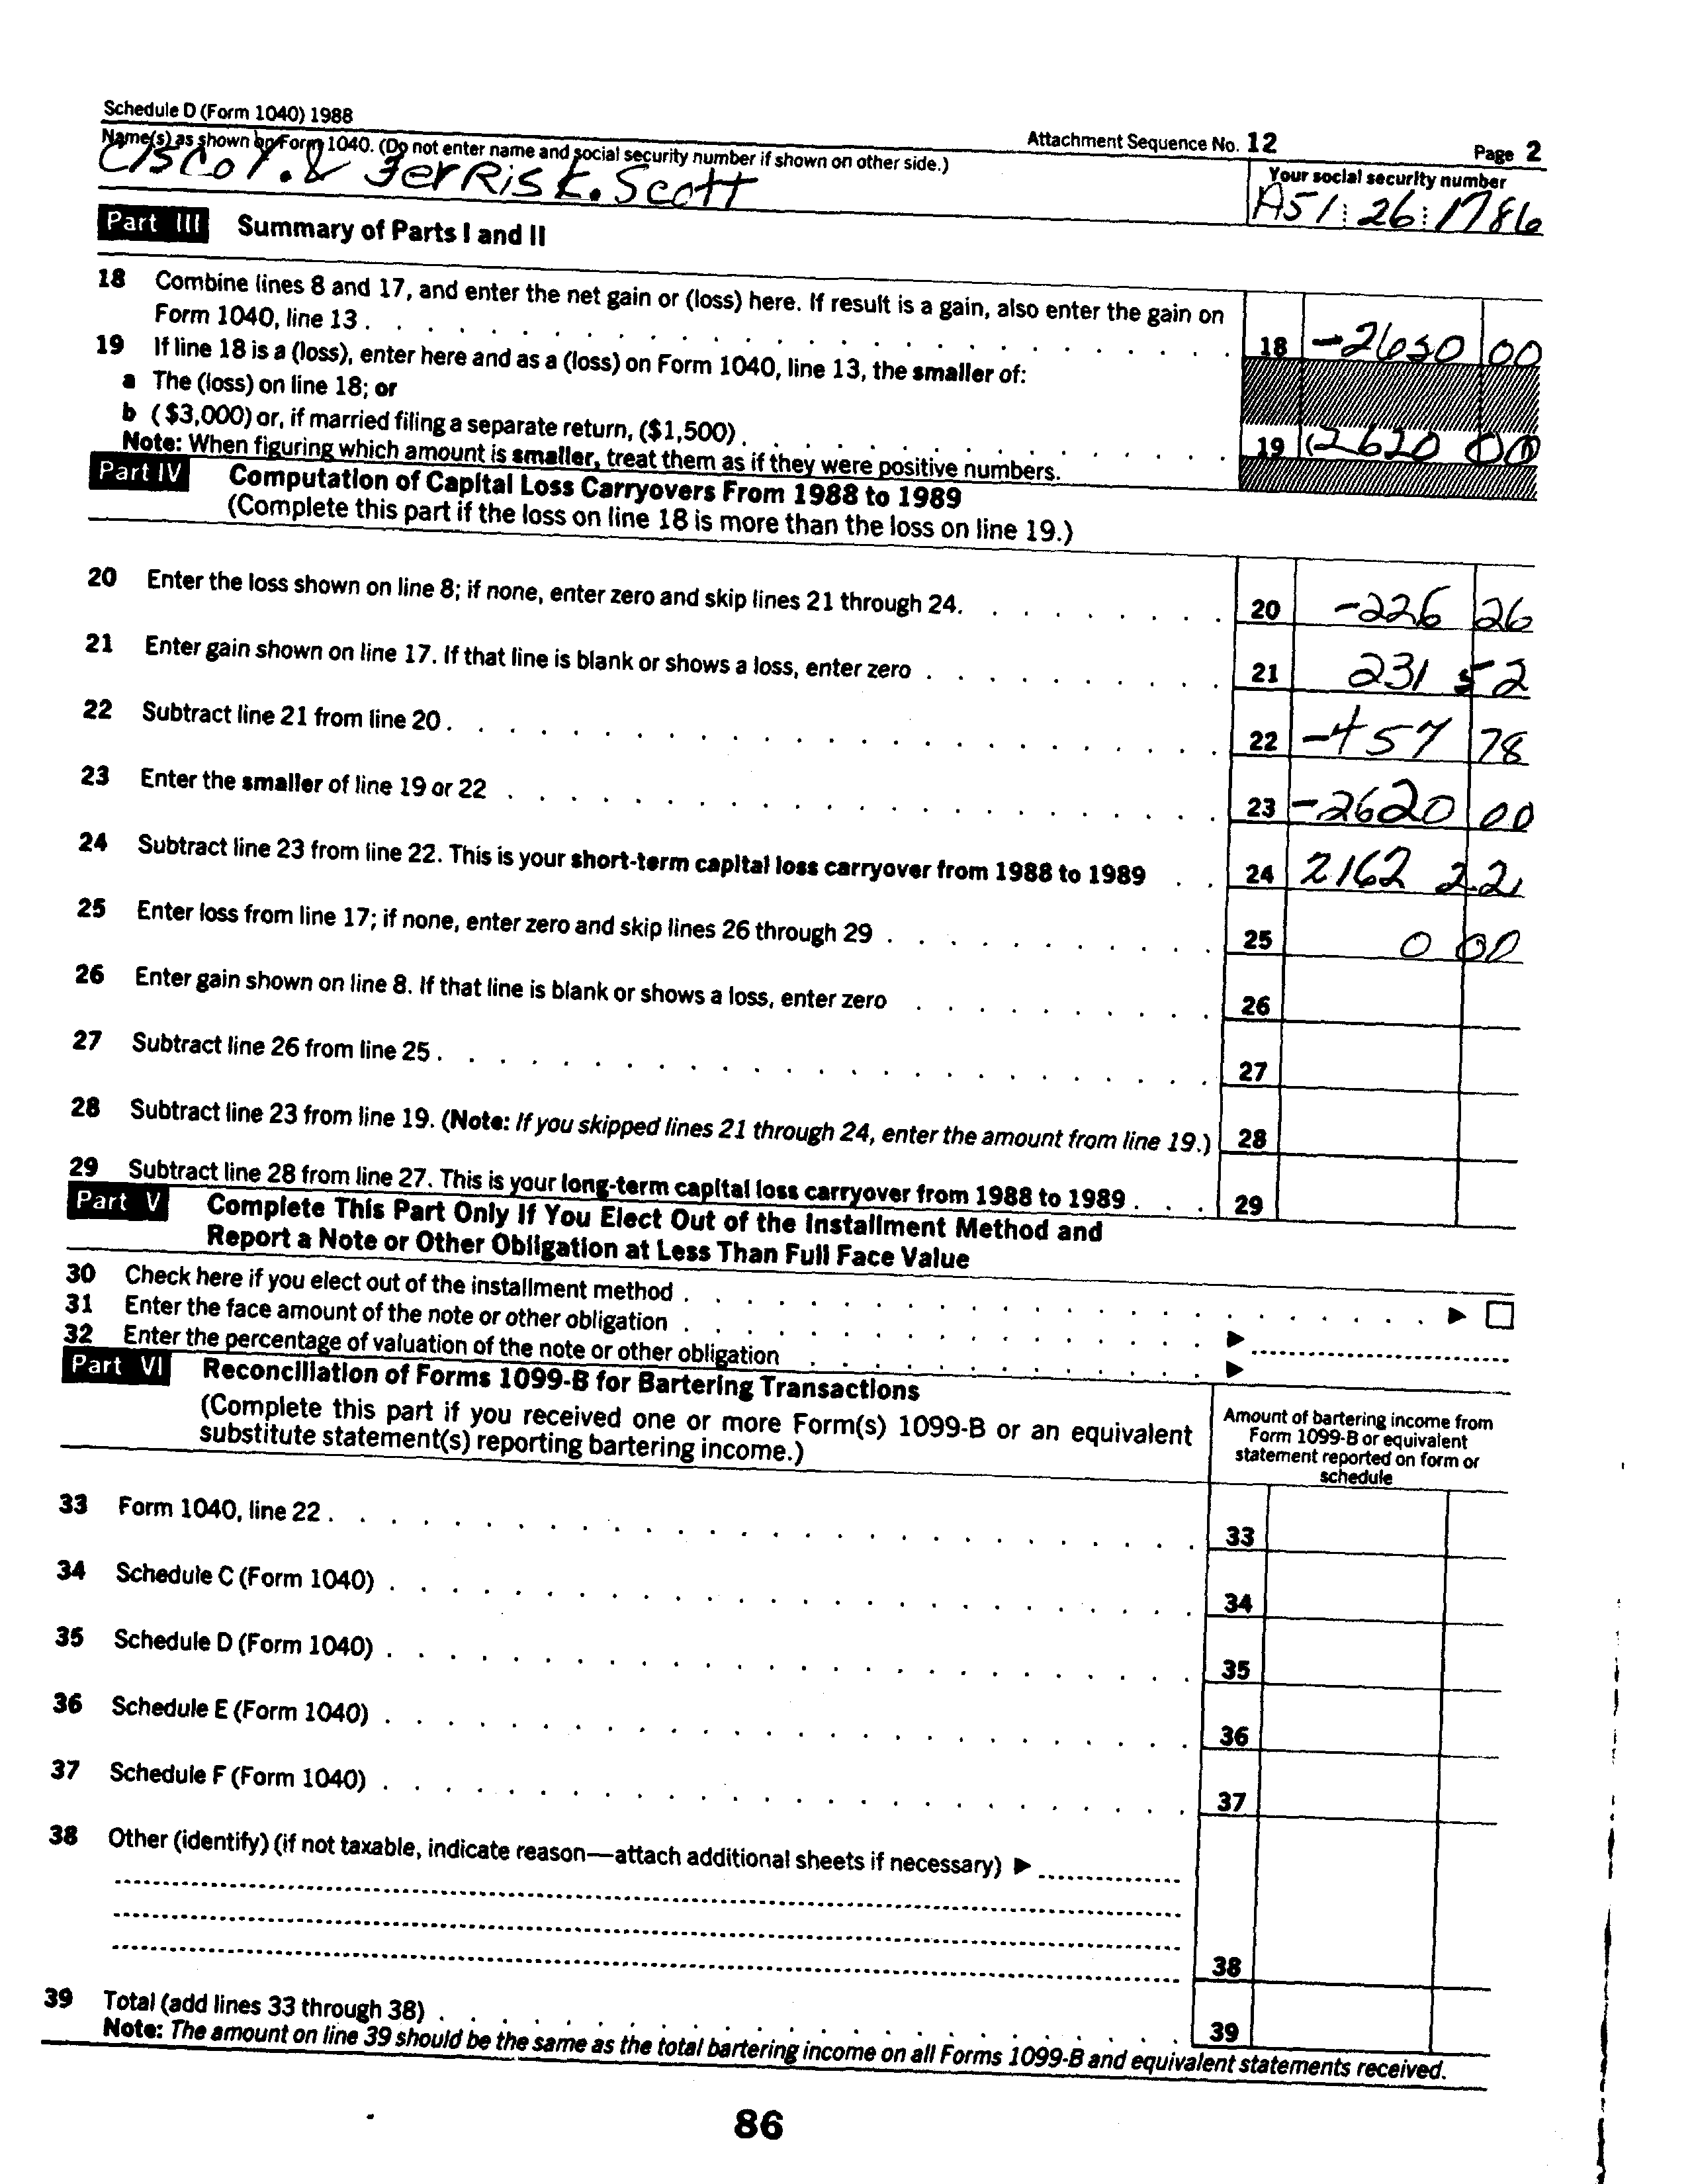 Schedule D (Form 1040) 1988
Attachment Sequence No. 12
Page 2
Name(s) as shown on Form 1040. (Do not enter name and social security number if shown on other side.)
Cisco Y. & Ferris K. Scott
Your social security number
A51 26 1786
Part III Summary of Parts I and II
18 Combine lines 8 and 17, and enter the net gain or (loss) here. If result is a gain, also enter the gain on
Form 1040, line 13 . 18 -2630 00
19 If line 18 is a (loss), enter here and as a (loss) on Form 1040, line 13, the smaller of:
a The (loss) on line 18; or
b ($3,000) or, if married filing a separate return, ($1,500) . 19 (2620 00
Note: When figuring which amount is smaller, treat them as if they were positive numbers.
Part IV Computation of Capital Loss Carryovers From 1988 to 1989
(Complete this part if the loss on line 18 is more than the loss on line 19.)
20 Enter the loss shown on line 8; if none, enter zero and skip lines 21 through 24. 20 -226 26
21 Enter gain shown on line 17. If that line is blank or shows a loss, enter zero 21 231 52
22 Subtract line 21 from line 20 . 22 -457 78
23 Enter the smaller of line 19 or 22 23 -2620 00
24 Subtract line 23 from line 22. This is your short-term capital loss carryover from 1988 to 1989 24 2162 22
25 Enter loss from line 17; if none, enter zero and skip lines 26 through 29 . 25 0 00
26 Enter gain shown on line 8. If that line is blank or shows a loss, enter zero 26
27 Subtract line 26 from line 25 . 27
28 Subtract line 23 from line 19. (Note: If you skipped lines 21 through 24, enter the amount from line 19.) 28
29 Subtract line 28 from line 27. This is your long-term capital loss carryover from 1988 to 1989 . 29
Part V Complete This Part Only If You Elect Out of the Installment Method and
Report a Note or Other Obligation at Less Than Full Face Value
30 Check here if you elect out of the installment method . ► □
31 Enter the face amount of the note or other obligation . ►
32 Enter the percentage of valuation of the note or other obligation ►
Part VI Reconciliation of Forms 1099-B for Bartering Transactions
(Complete this part if you received one or more Form(s) 1099-B or an equivalent
substitute statement(s) reporting bartering income.)
Amount of bartering income from
Form 1099-B or equivalent
statement reported on form or
schedule
33 Form 1040, line 22 . 33
34 Schedule C (Form 1040) . 34
35 Schedule D (Form 1040) . 35
36 Schedule E (Form 1040) . 36
37 Schedule F (Form 1040) . 37
38 Other (identify) (if not taxable, indicate reason—attach additional sheets if necessary) ►
38
39 Total (add lines 33 through 38) . 39
Note: The amount on line 39 should be the same as the total bartering income on all Forms 1099-B and equivalent statements received.
86